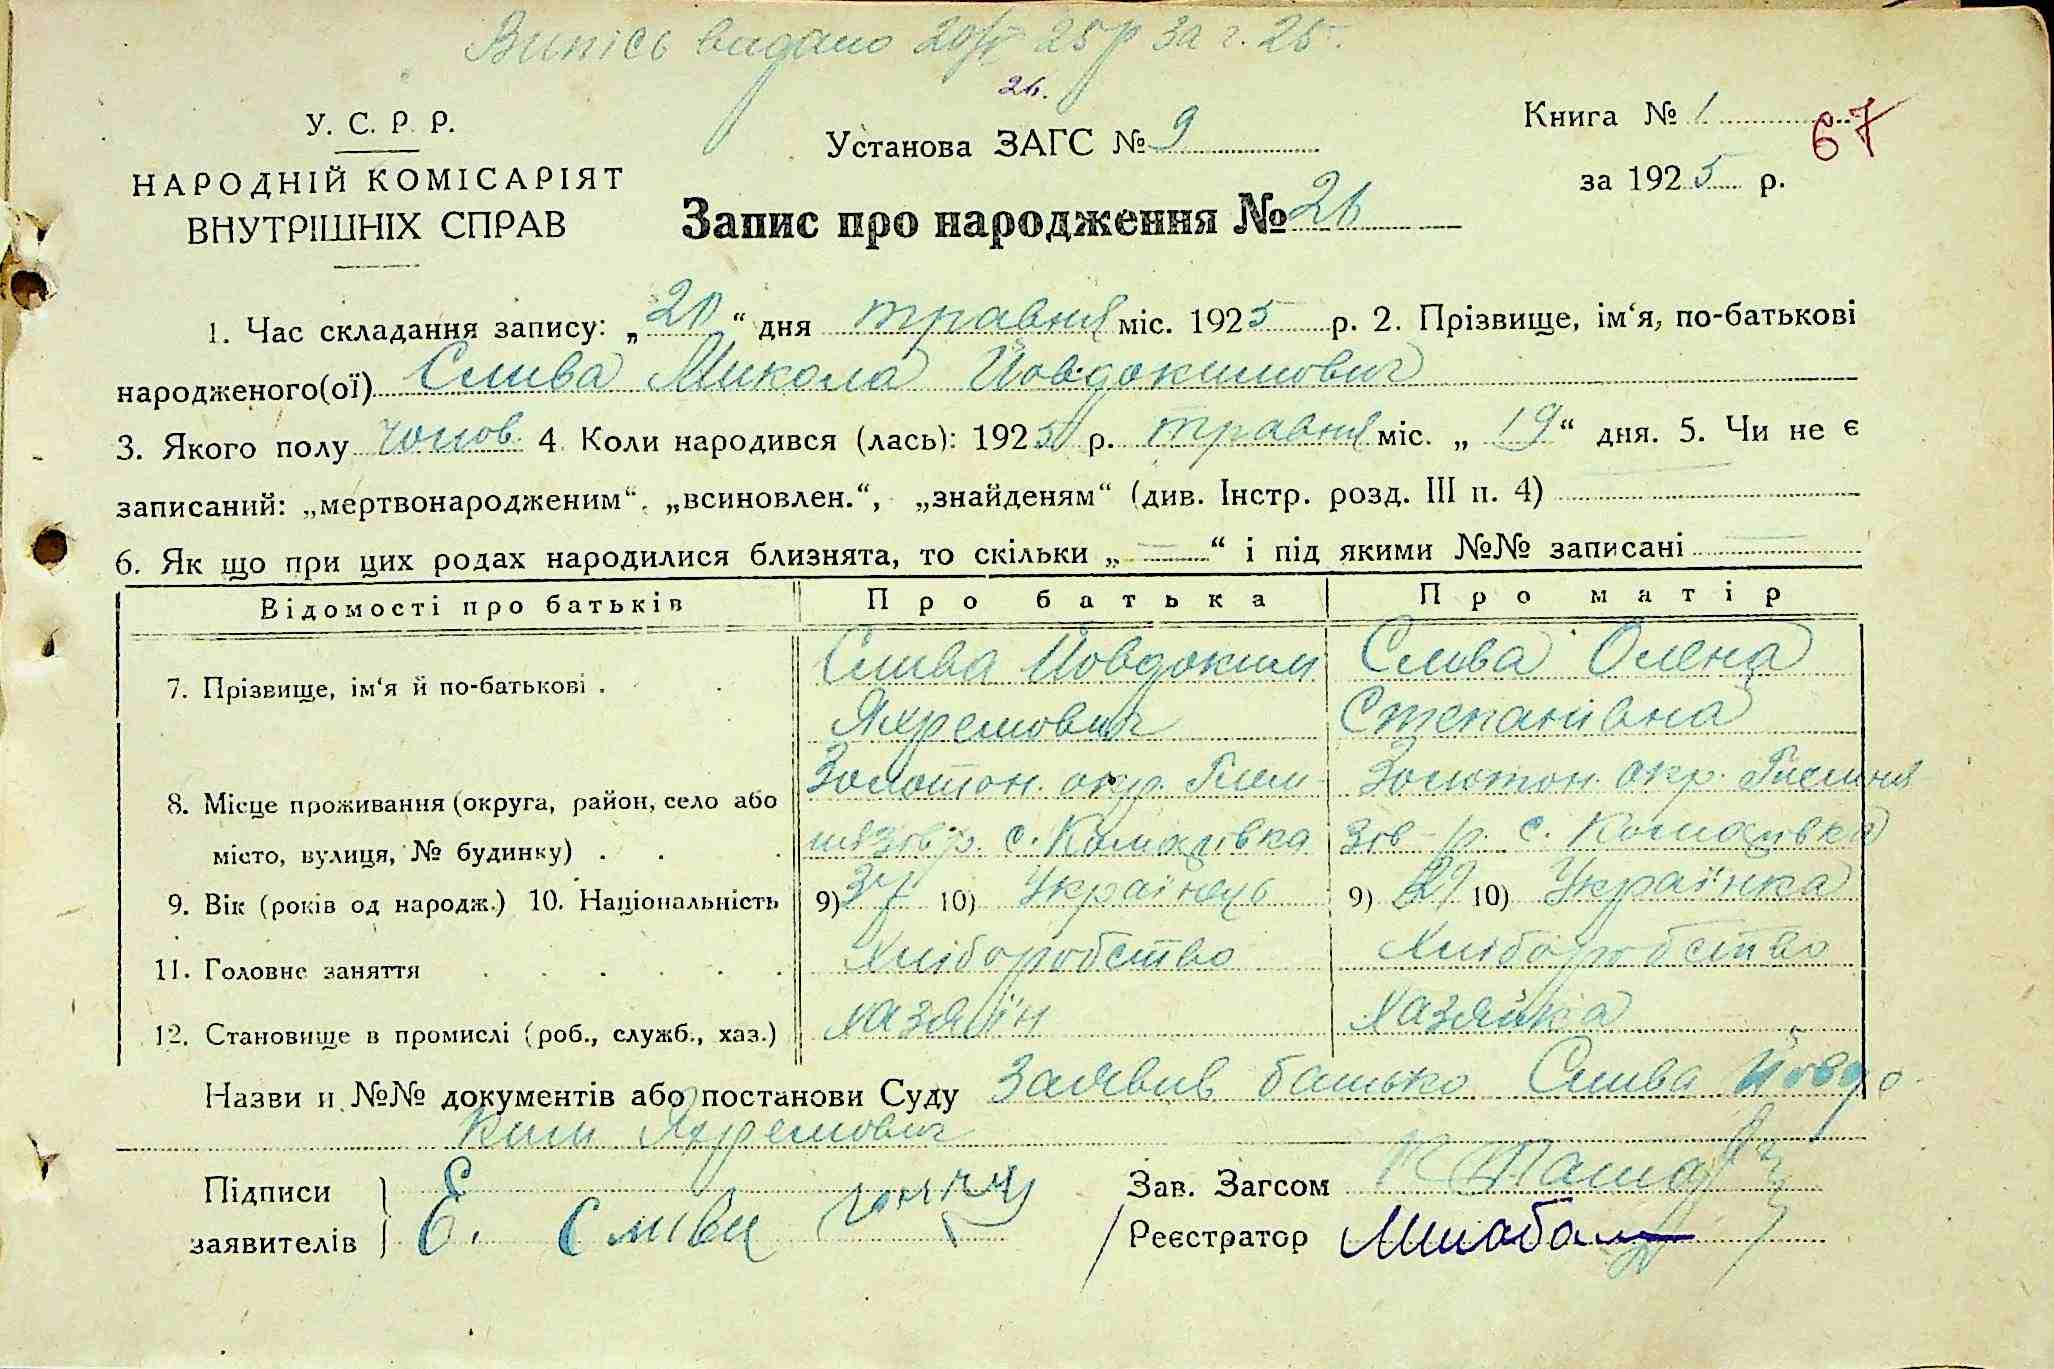 Випісь видано 20/V 25р за г. 26.
26.
У. С. Р. Р.
НАРОДНІЙ КОМІСАРІЯТ
ВНУТРІШНІХ СПРАВ
Установа ЗАГС № 9
Книга № 1
67
за 1925 р.
Запис про народження № 26
1. Час складання запису: „20“ дня травня міс. 1925 р. 2. Прізвище, ім‘я, по-батькові
народженого(ої) Слива Микола Йовдокимович
3. Якого полу чолов. 4. Коли народився (лась): 1925 р. травня міс. „19“ дня. 5. Чи не є
записаний: „мертвонародженим“, „всиновлен.“, „знайденям“ (див. Інстр. розд. III п. 4)
6. Як що при цих родах народилися близнята, то скільки „ — “ і під якими №№ записані —
Відомості про батьків Про батька Про матір
7. Прізвище, ім‘я й по-батькові . Слива Йовдоким Слива Олена
Яхремович Степанівна
8. Місце проживання (округа, район, село або Золотон. окр. Золотон. окр.
місто, вулиця, № будинку) . . . р. с. Комарівка р. с. Комарівка
9. Вік (років од народж.) 10. Національність 9) 37 10) Українець 9) 29 10) Українка
11. Головне заняття . . . . . Хліборобство Хліборобство
12. Становище в промислі (роб., служб., хаз.) хазяїн хазяйка
Назви и №№ документів або постанови Суду Заявив батько Слива Йовдо-
ким Яхремович
Підписи
заявителів Е. Слива
Зав. Загсом
Реєстратор